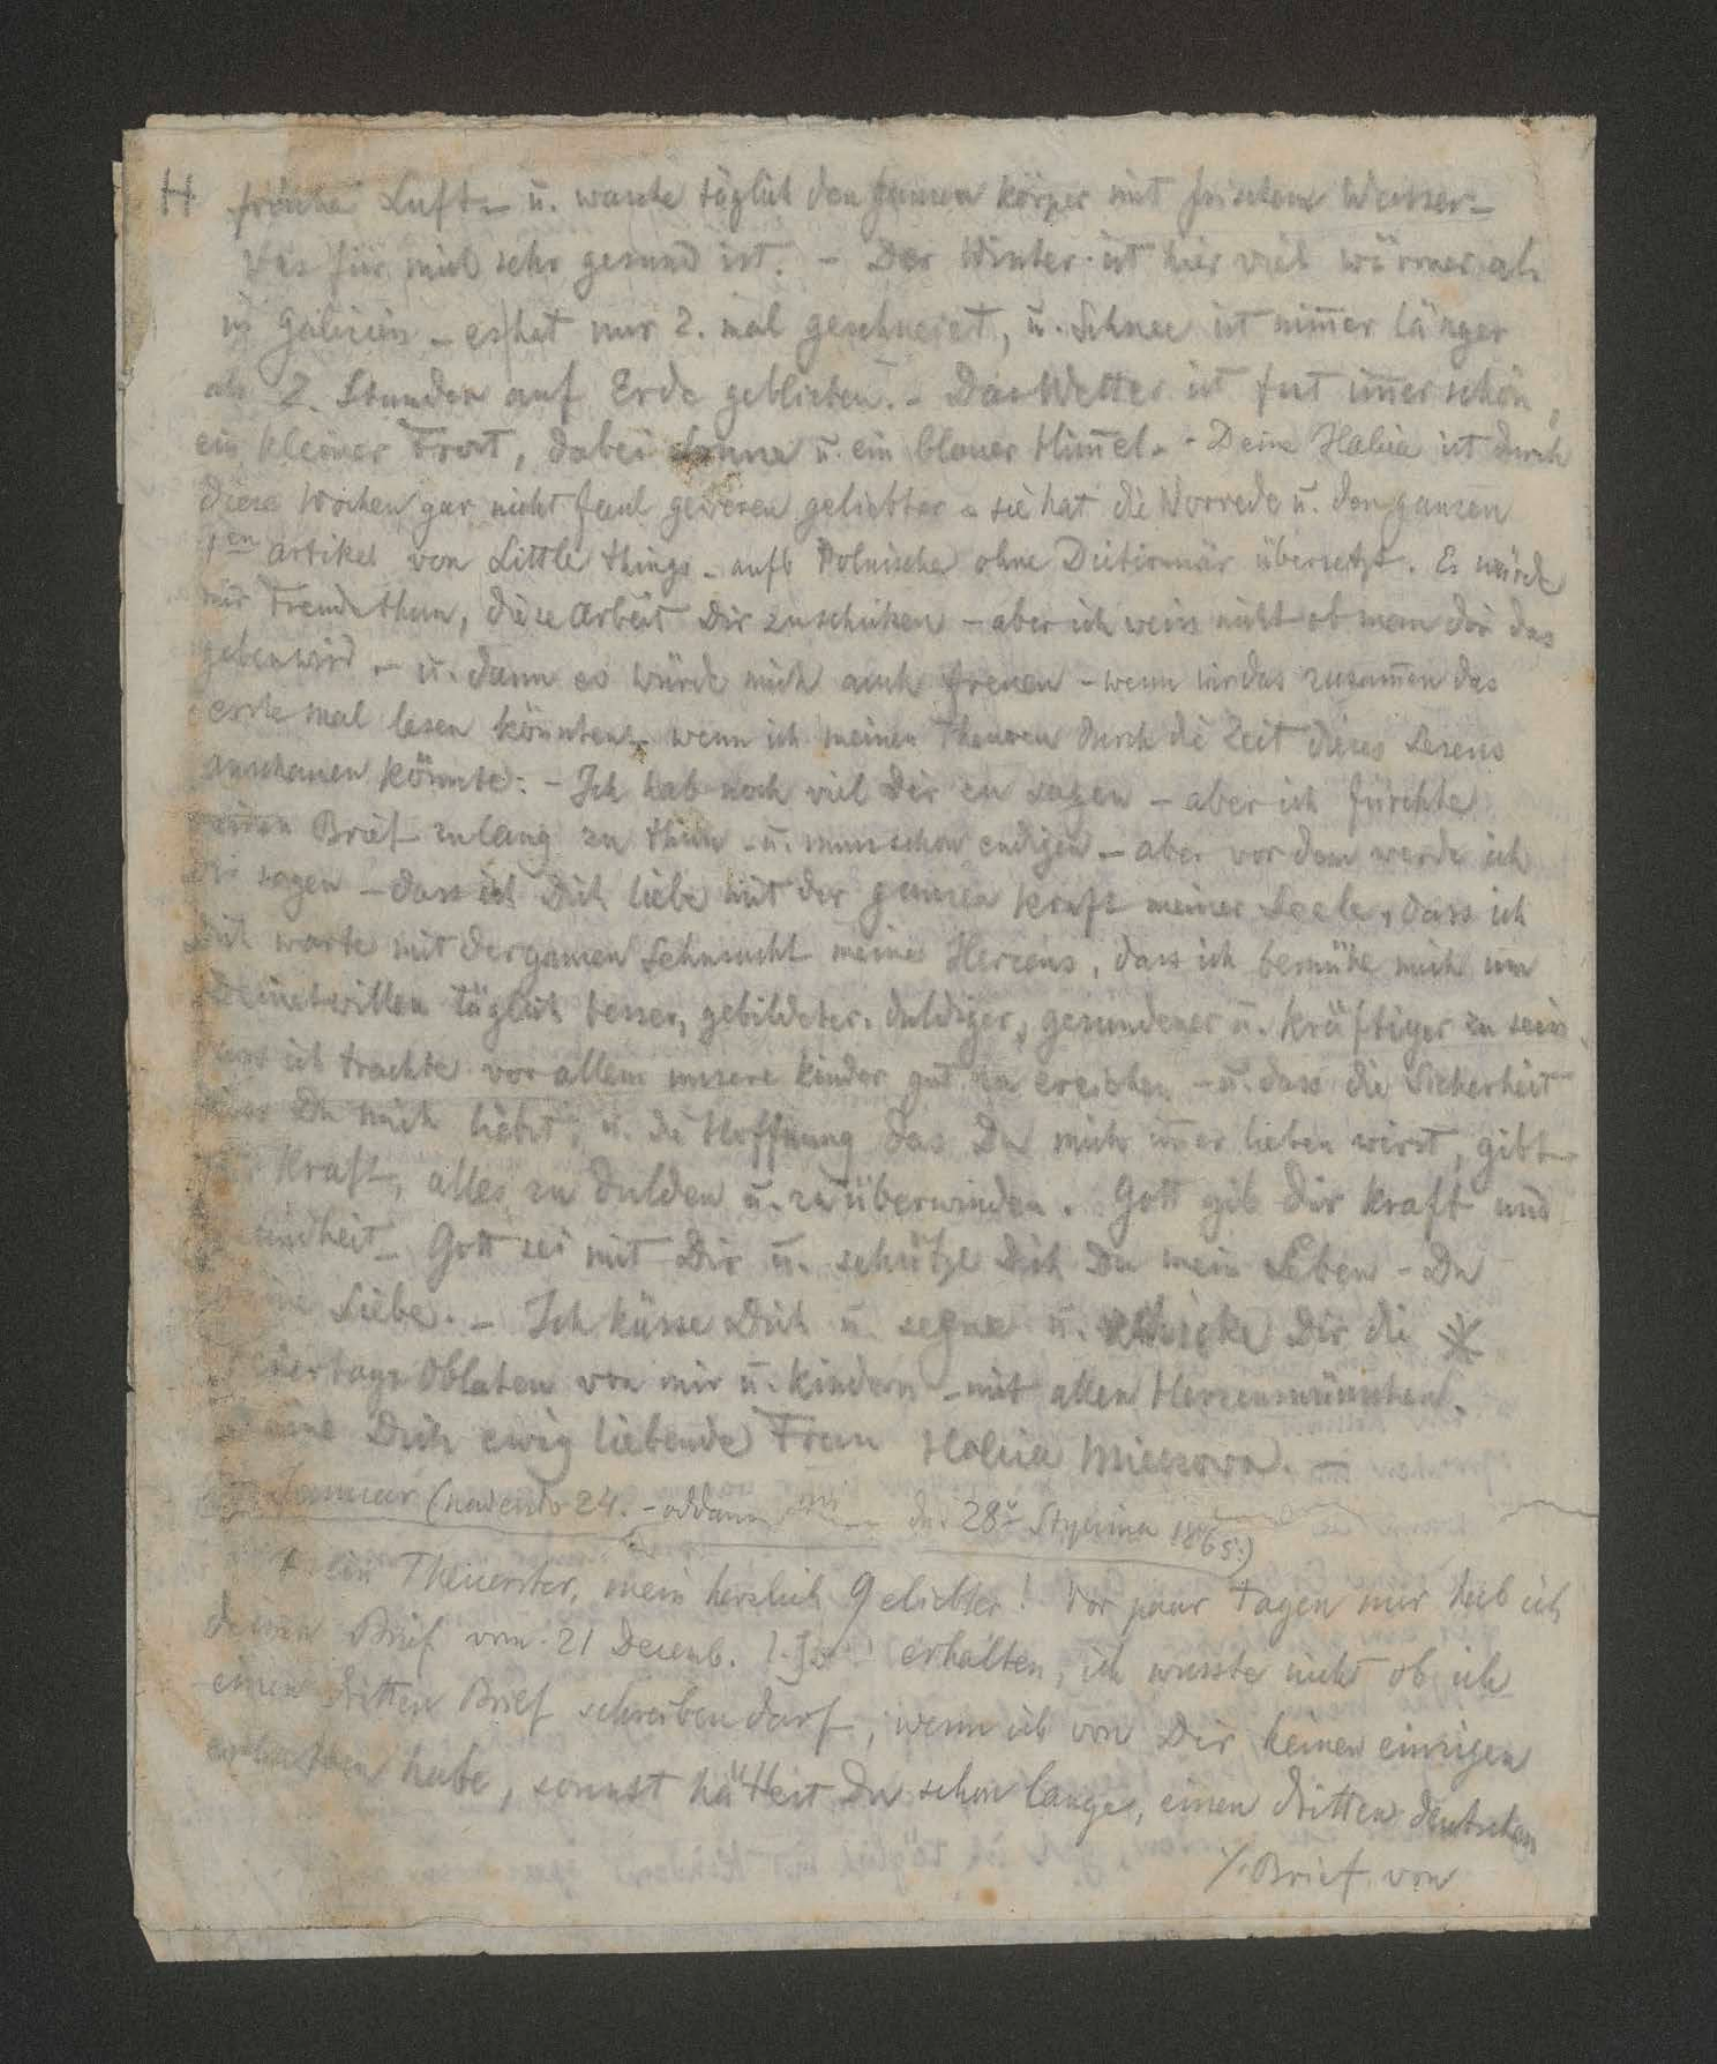 H frische Luft – u. wasche täglich den ganzen körper mit frischem Wasser –
was für mich sehr gesund ist. – Der Winter ist hier viel wärmer als
in Galicien – es hat nur 2. mal geschneiet, u. Schnee ist nim̄er länger
als 2. Stunden auf Erde geblieben. – Das Wetter ist fast im̄er schön,
ein kleiner Frost, dabei Sonne u. ein blauer Him̄el. – Deine Halina ist durch
diese Wochen gar nicht faul gewesen geliebter – sie hat die Vorrede u. den ganzen
1en artikel von Little things – aufs Polnische ohne Dictionär übersetzt. Es würde
mir Freude thun, diese Arbeit Dir zuschicken – aber ich weiss nicht ob man dir das
geben wird. – u. dann es würde mich auch freuen – wenn wir das zusam̄en das
erste mal lesen könnten – wenn ich meinen Theuren durch die Zeit dieses Lesens
anschauen könnte: – Ich hab noch viel Dir zu sagen – aber ich fürchte
meinen Brief zulang zu thun – u. muss schon endigen – aber vor dem werde ich
Dir sagen – dass ich Dich liebe mit der ganzen Kraft meiner Seele, dass ich
Dich warte mit der ganzen Sehnsucht meines Herzens, dass ich bemühe mich um
Deinetwillen täglich besser, gebildeter, duldiger, gesundener u. kräftiger zu sein
dass ich trachte vor allem unsere Kinder gut zu erziehen – u. dass die Sicherheit
dass Du mich liebst, u. die Hoffnung das Du mich im̄er lieben wirst, gibt
Kraft, alles zu dulden u. zu überwinden. Gott gib Dir Kraft und
undheit – Gott sei mit Dir u. schütze Dich Du mein Leben – Du
meine Liebe. – Ich küsse Dich u. segne u. schicke Dir die *
iertags Oblaten von mir u. Kindern – mit allen Herzenswünschen.
Deine Dich ewig liebende Frau Halina Miessowa. –
Januar (nadeszło 24. – oddano mi 28º Stycznia 1865.)
Mein Theuerster, mein herzlich Geliebter! Vor paar Tagen nur hab ich
deinen Brief vom 21 Decemb. erhalten, ich wusste nicht ob ich
einen dritten Brief schreiben darf, wenn ich von Dir keinen einzigen
erhalten habe, sonnst hättest Du schon lange, einen dritten deutschen
/. Brief von